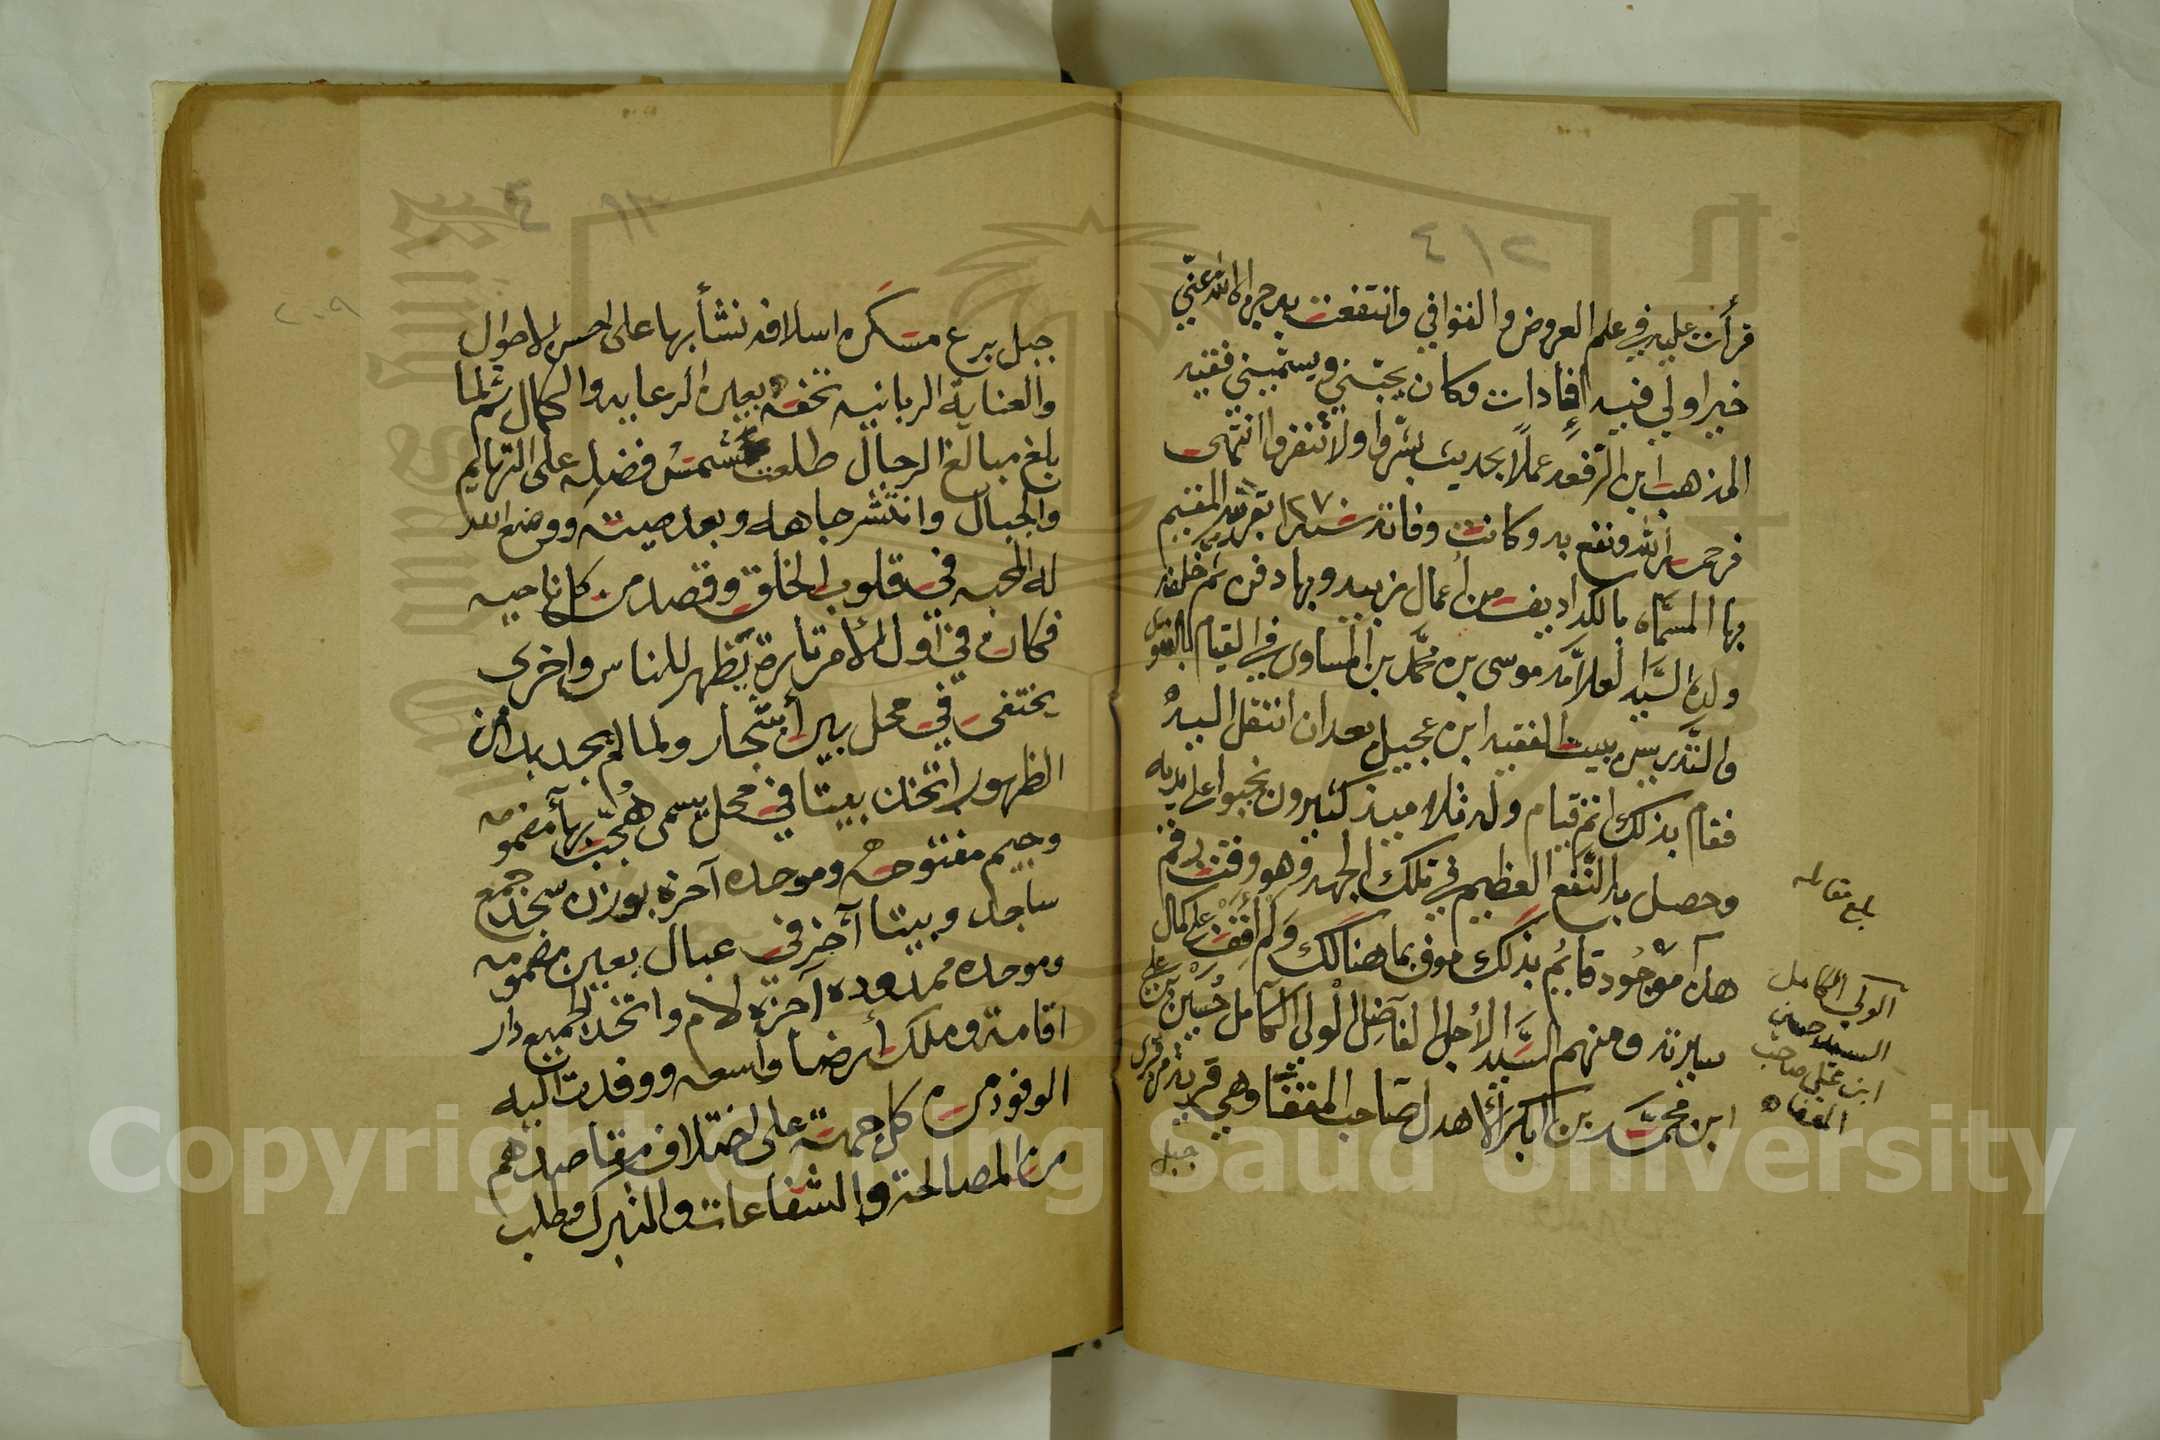 قرأت عليه في علم العروض والقوافي وانتفعت به جزاه الله عني
خيرا ولي فيه إفادات وكان يحبّني ويسمّيني فقيه
المذهب ابن الرّفعه عملاً بحديث بشّروا ولا تنفروا انتهى
فرحمه الله ونفع به وكانت وفاته سنة بقرية المقيم
بها المسمّاه من أعمال زبيد وبها دفن ثم خلفه
ولده السَّيد العلاَّمه موسى بن محمَّد بن المساوى في القيام بالفتوى
والتَّدريس ببيت الفقيه ابن عجيل بعد ان انتقل اليه
فقام بذلك اتم قيام وله تلاميذ كثيرون نجبوا على يديه
وحصل به النَّفع العظيم في تلك الجهه وهو وقت رقم
هذا موجُود قائم بذلك موف بما هنالك وَلم أقف على كمال
سيرته ومنهم السَّيد الأجل الفاضل الولي الكامل حُسين بن علي
ابن محمَّد بن ابكر الأهدل صَاحب المقفا وهي قرية من قرى
جبل
بلغ مقابله
الولي الكامل
السيد حسين
ابن علي صاحب
المقفا
جبل برع مسكن اسلافه نشأ بها على احسن الاحوال
والعناية الربانيه تحفه بعين الرعايه والكمال ثم لما
بلغ مبالغ الرجال طلعت شمس فضله على التهائم
والجبال وانتشر جاهه وبعد صيته ووضع الله
له المحبه في قلوب الخلق وقصد من كل ناحيه
فكان في أول الأمر تارة يظهر للناس واخرى
يختفي في محل بين أشجار ولما لم يجد بدا من
الظهور اتخذ بيتا في محل يسمى هُجَب بهآ مضمومه
وجيم مفتوحه وموحده آخره بوزن سجد جمع
ساجد وبيتا آخر في عبال بعين مضمومه
وموحده ممدوده آخره لام واتخذ الجميع دار
اقامته وملك أرضا واسعه ووفدت اليه
الوفود من كل جهة على اختلاف مقاصدهم
من المصالحة والشفاعات والتبرك وطلب
Copyright © King Saud University